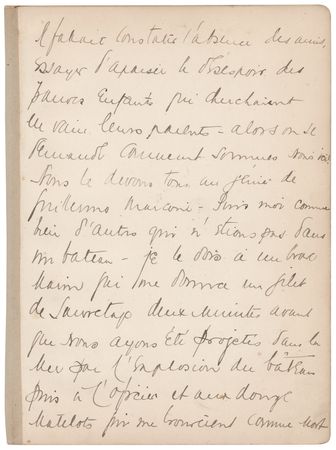 il fallait constater l'absence des amis,
essayer d'apaiser le désespoir des
pauvres Enfants qui cherchaient
en vain leurs parents - alors on se
demande comment sommes nous ici
Nous le devons tous au génie de
Guillermo Marconi - Puis moi comme
bien d'autres qui n'étions pas dans
un bateau - je le dois à un brave
Marin qui me donna un gilet
de Sauvetage deux Minutes avant
que Nous ayons Été projetés dans la
Mer par l'Explosion du bâteau
puis à l'Officier et aux douze
Matelots qui me croyaient comme Mort